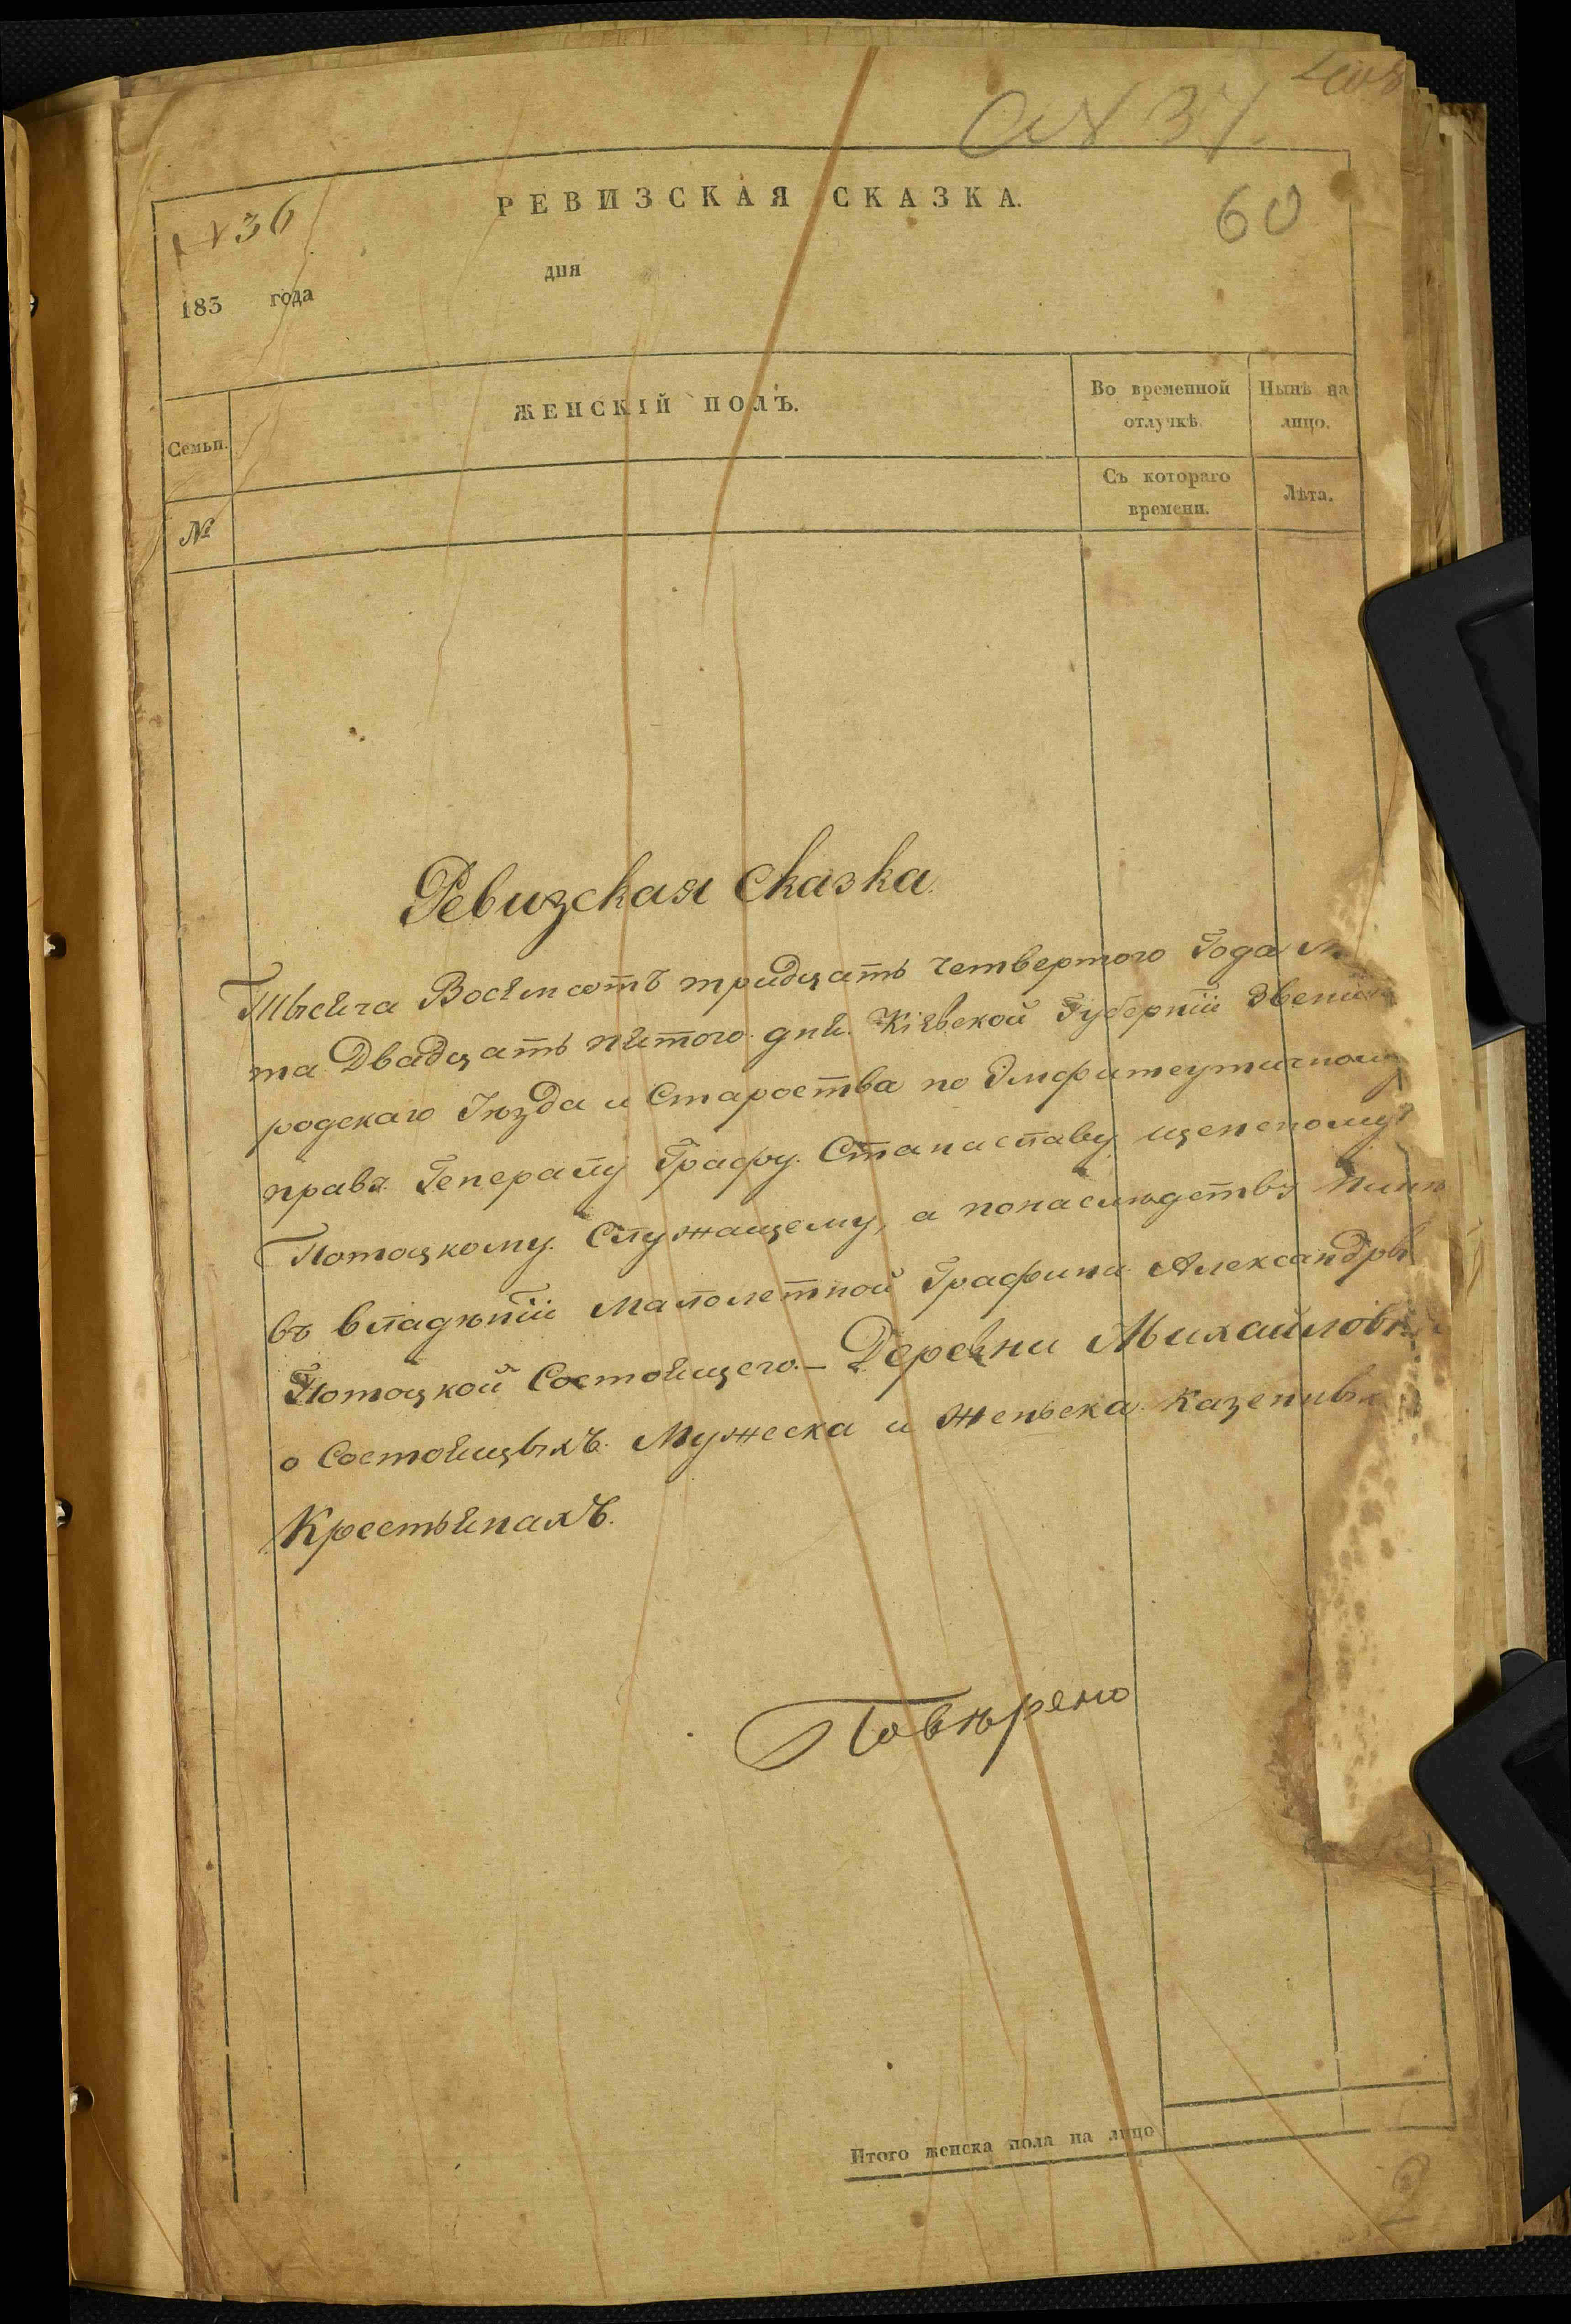 № 37.
№ 36
РЕВИЗСКАЯ СКАЗКА.
60
дня
183 года
Семьи.
ЖЕНСКІЙ ПОЛЪ.
Во временной
отлучкѣ.
Нынѣ на
лицо.
№
Съ котораго
времени.
Лѣта.
Ревизская Сказка.
Тысяча Восемсотъ тридцать четвертого Года
та Двадцать пятого дня. Кіевской Губерніи Звениго
родскаго Уезда и Староства по Эмфитеутичному
праву Генералу Графу Станиславу щенсному
Потоцкому Служащему, а понаслѣдству
въ владѣніи малолетной Графини Александры
Потоцкой Состоящего. - Деревни Михайловки
о Состоящыхъ Мужеска и женьска казенных
Крестьянахъ.
Повѣрено
Итого женска пола на лицо